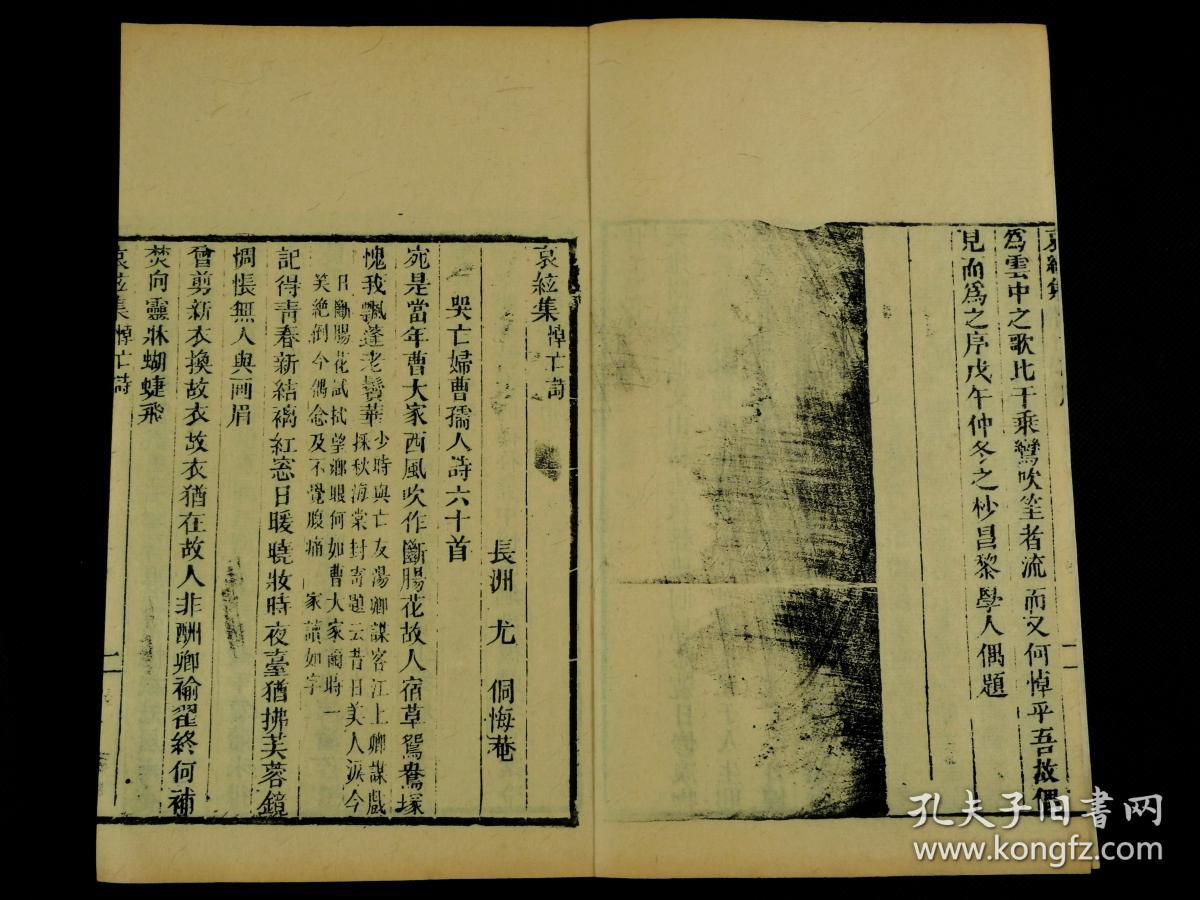 為雲中之歌比于乘鸞吹笙者流而又何悼乎吾故偶
見而為之序戊午仲冬之杪昌黎學人偶題
哀絃集 悼亡詩
長洲 尤 侗悔菴
哭亡婦曹孺人詩六十首
宛是當年曹大家西風吹作斷腸花故人宿草鴛鴦塚
愧我飄蓬老鬢華 少時與亡友湯卿謀客江上卿謀戲
採秋海棠封寄題云昔日美人淚今
日斷腸花試拭望鄉眼何如曹大家爾時一
笑絕倒今偶念及不覺腹痛 家讀如字
記得青春新結褵紅窓日暖曉妝時夜臺猶拂芙蓉鏡
惆悵無人與画眉
曾剪新衣換故衣故衣猶在故人非酬卿褕翟終何補
焚向靈牀蝴蝶飛
哀絃集 悼亡詩
二
孔夫子旧书网
www.kongfz.com